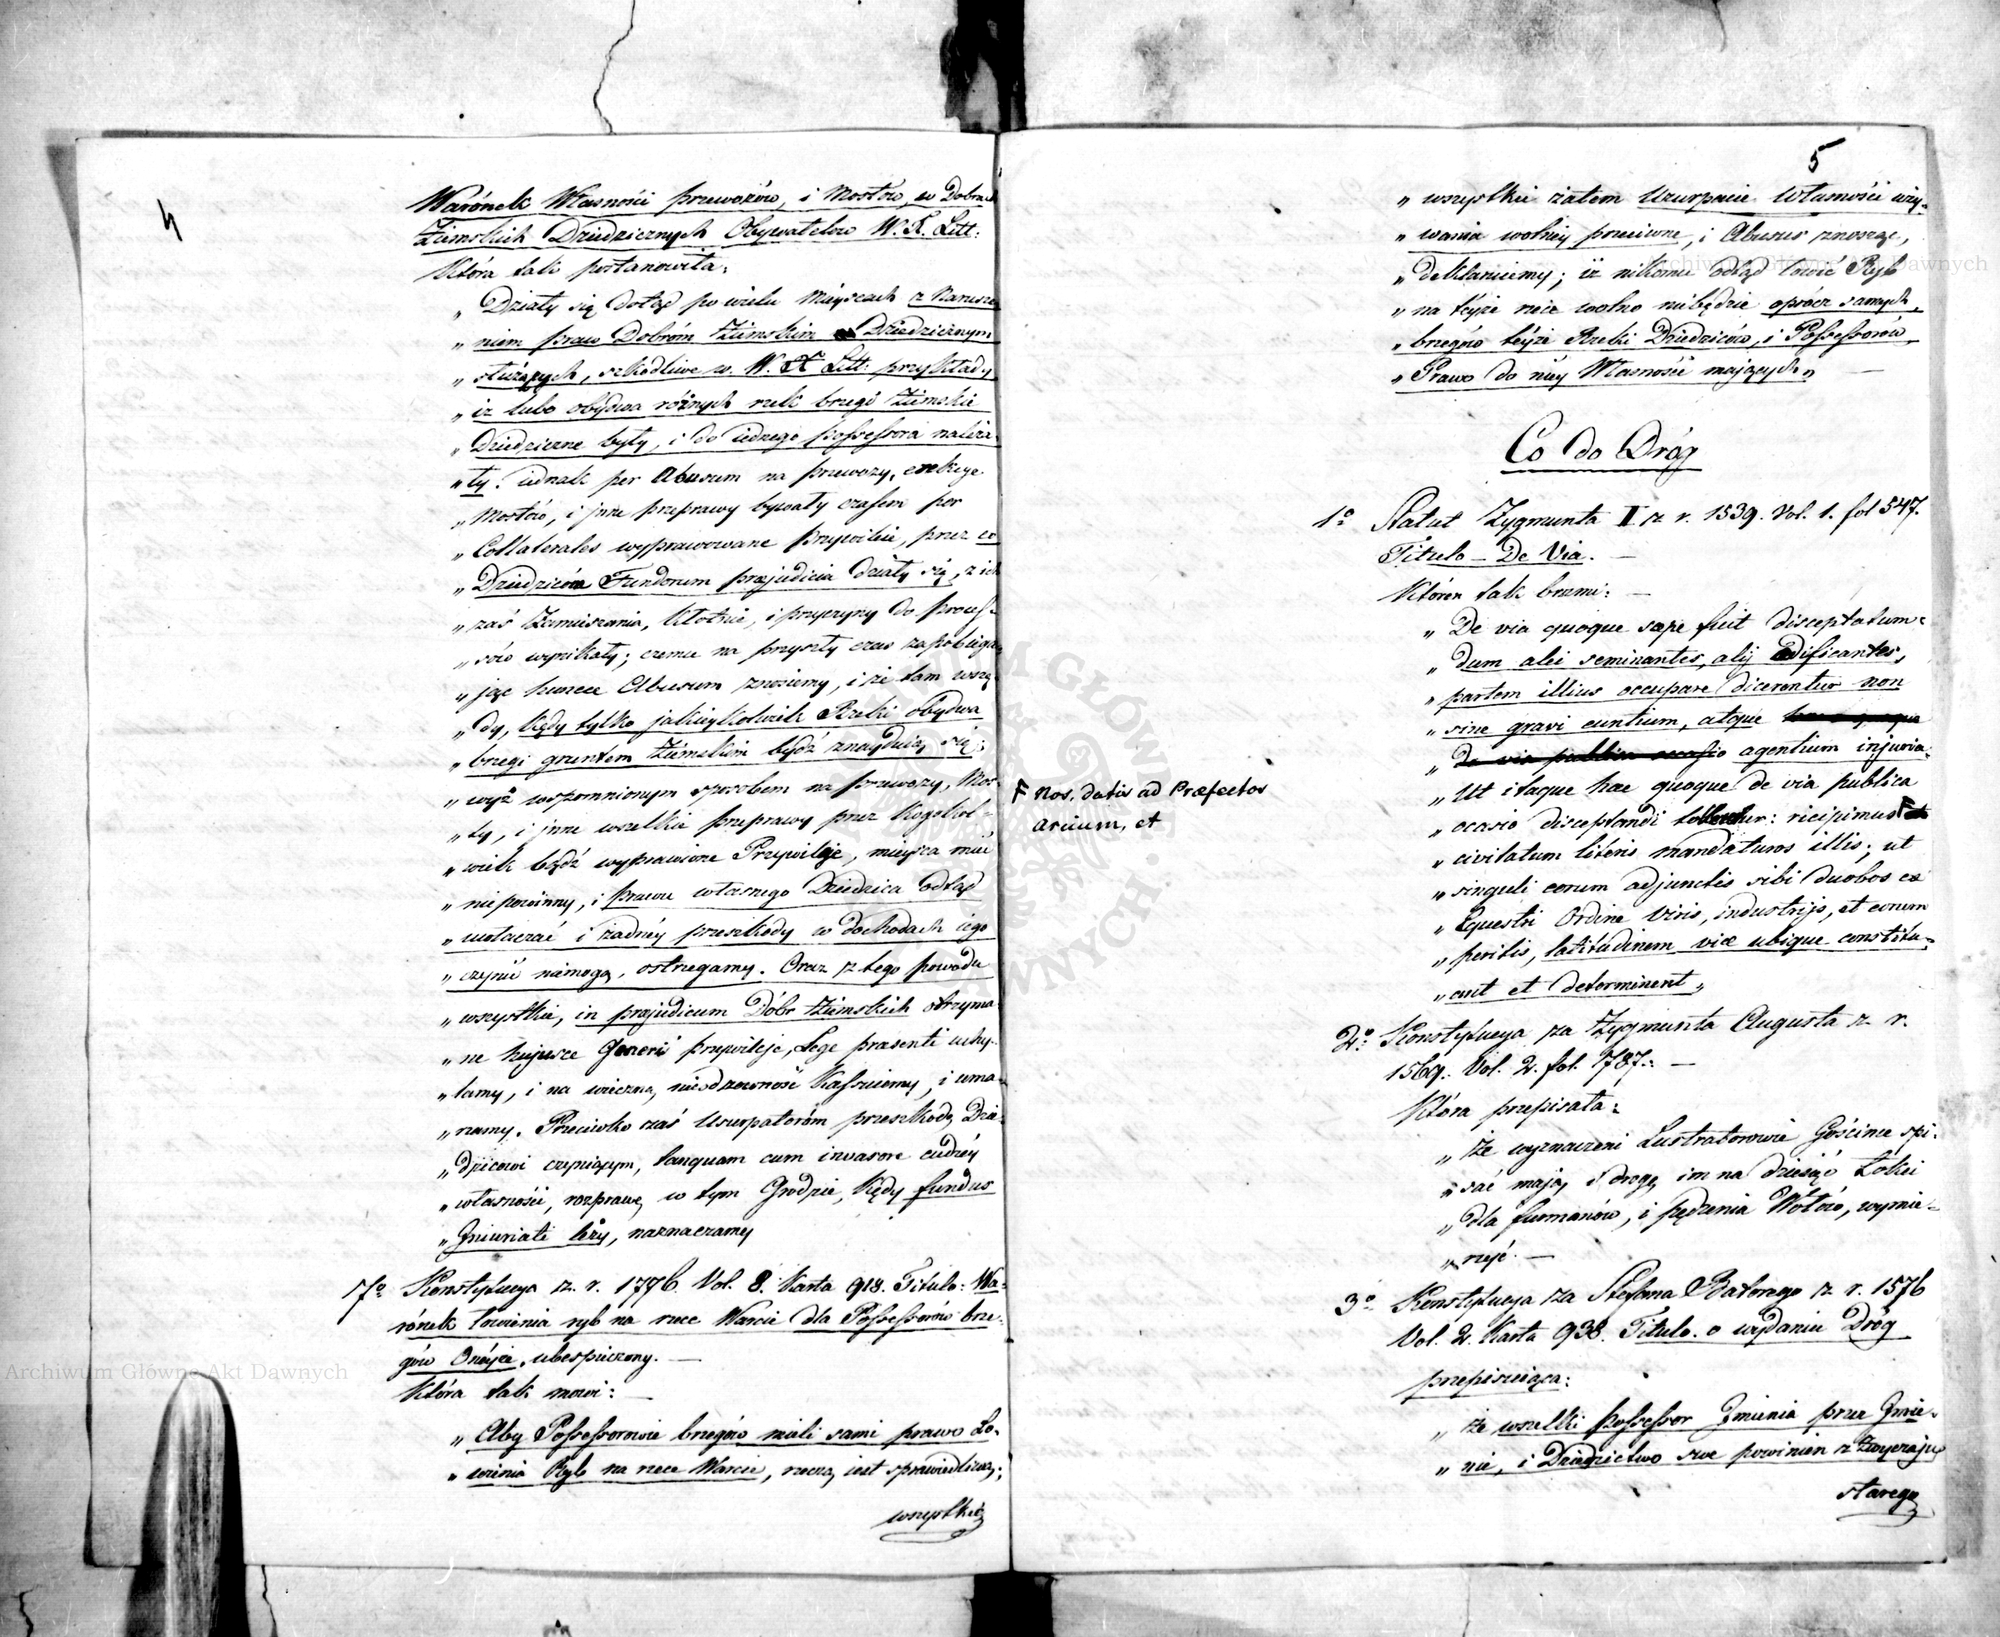 4
Warónek Własności przewozów, i Mostów, w Dobrach
Ziemskich Dziedzicznych Obywatelów W. X. Litt:
Która tak postanowiła:
„ Działy się dotąd po wielu Mieyscach z Narusze
„ niem praw Dobróm Ziemskim Dziedzicznym
„ służących, szkodliwe w. W. X Litt: przykłady
„ iż lubo obydwa różnych rzek brzegi Ziemskie
„ Dziedziczne były, i do iednego possessora należa
„ ły. iednak per Abusum na przewozy, erekcye
„ Mostów, i jnne przeprawy bywały czasem per
„ Collaterales wyprawowane przywileie, przez co
„ Dziedziców Fundorum præjudicia działy się, z ich
„ zaś Zamieszania, kłotnie, i przyczyny do proces-
„ sów wynikały; czemu na przyszły czas zapobiega
„ jąc hunece Abusum znosiemy, i że tam wszę
„ dy, kędy tylko jakieykolwiek Rzeki obydwa
„ brzegi gruntem Ziemskim bydź znayduią się;
„ wyż wspomnionym sposobem na przewozy, Mos-
„ ty, i jnne wszelkie przeprawy przez kogokol-
„ wiek bydź wyprawione Przywileje, mieysca mieć
„ niepowinny, i prawu własnego Dziedzica odtąd
„ uwłaczać i żadnéy przeszkody w dochodach iego
„ czynić niemogą, ostrzegamy. Oraz z tego powodu
„ wszystkie, in præjudicium Dóbr Ziemskich otrzyma
„ ne hujusce Generis przywileje, Lege præsenti uchy-
„ lamy, i na wieczną nieodzowność Kassuiemy, i uma-
„ rzamy. Przeciwko zaś Usurpatoróm przeszkodę Dzie-
„ dzicowi czyniącym, tanquam cum invasore cudzéy
„ własności, rozprawę w tym Grodzie, kędy fundus
„ Jniuriati leży, naznaczamy
7o Konstytucya z. r. 1776. Vol. 8. Karta 918. Titulo: Wa-
rónek łowienia ryb na rzece Warcie dla Possessorów brze-
gów Onéyże, ubespieczony. —
Która tak mowi: —
„ Aby Possessorowie brzegów mieli sami prawo Ło-
„ wienia Ryb na rzece Warcie, rzeczą iest sprawiedliwą;
wszystkie
5
„ wszystkie zatem Uzurpacie Własności uży-
„ wania wolney przeciwne, i Abusus znosząc,
„ deklaruiemy; iż nikomu odtąd łowić Ryb
„ na téyże rzece wolno niebędzie oprócz samych
„ brzegów téyże Rzeki Dziedziców, i Possessorów,
„ Prawo do niéy Własności maiących„ —
Co do Dróg
1o Statut Zygmunta II z r. 1539. Vol. 1. fol 547.
Titulo — De Via. —
Któren tak brzmi: —
„ De via quoque sæpe fuit disceptatum:
„ dum alii seminantes, alij ædificantes,
„ partem illius occupare dicerentur non
„ sine gravi euntium, atque
„ agentium injuria:
„ Ut itaque hæc quoque de via publica
„ ocasio disceptandi tolleretur: recipimus F
F Nos. datis ad Præfectos
arcium, et
„ civitatum literis mandaturos illis; ut
„ singuli eorum adjunctis sibi duobos ex
„ Equestri Ordine Viris, industrijs, et eorum
„ peritis, latitudinem viæ ubique constitu-
„ ant et determinent„
2o Konstytucya za Zygmunta Augusta z r.
1569. Vol. 2. fol. 787: —
Która przepisała:
„ Że wyznaczeni Lustratorowie Goścince spi-
„ sać mają i drogę im na dziesięć Łokci
„ dla furmanów, i pędzenia Wołów, wymie-
„ rzyć. —
3o Konstytucya za Stefana Batorego z r. 1576
Vol. 2. Karta 938. Titulo. o wydaniu Dróg
przepisuiąca:
„ że wszelki possessor Jmienia przez Jmie-
„ nie, i Dziedzictwo swe powinien z Zwyczaju
starego
Archiwum Główne Akt Dawnych
Archiwum Główne Akt Dawnych